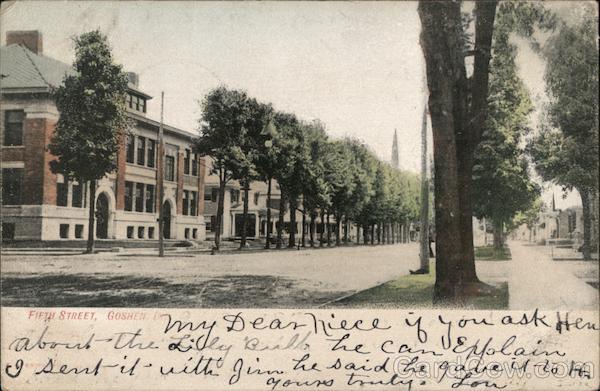 FIFTH STREET, GOSHEN, I
My Dear Niece if you ask Hen
about the Lily Bulb he can Explain
I sent it with Jim he said he gave it to H
yours truly Lou
CardCow.com